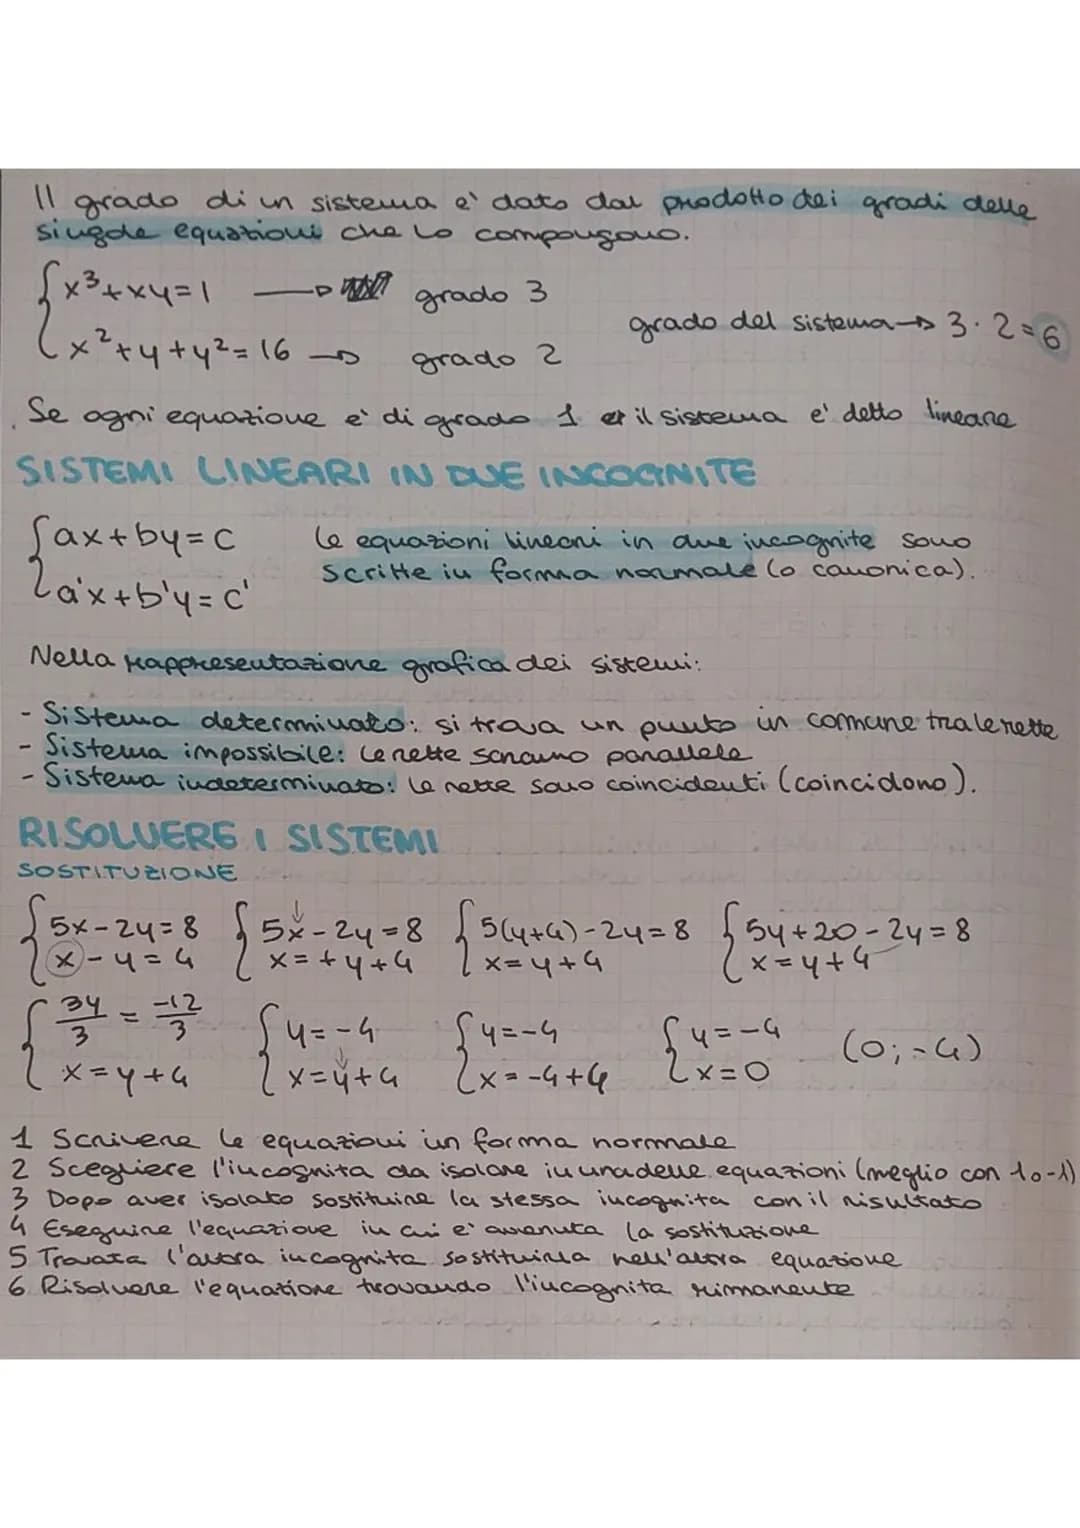 Il grado di un sistema e' dato dal prodotto dei gradi delle
singole equazioni che lo compongono.
x³+xy=1 → grado 3
grado del sistema → 3·2=6
x²+y+y²=16 → grado 2
Se ogni equazione e' di grado 1 il sistema e' detto lineare
SISTEMI LINEARI IN DUE INCOGNITE
ax+by=c Le equazioni lineari in due incognite sono
a'x+b'y=c' scritte in forma normale (o canonica).
Nella rappresentazione grafica dei sistemi:
- Sistema determinato: si trova un punto in comune tra le rette
- Sistema impossibile: le rette saranno parallele
- Sistema indeterminato: le rette sono coincidenti (coincidono).
RISOLVERE I SISTEMI
SOSTITUZIONE
{5x-2y=8 {5x-2y=8 {5(y+4)-2y=8 {5y+20-2y=8
{x-y=4 {x=+y+4 {x=y+4 {x=y+4
{3y/3=-12/3 {y=-4 {y=-4 {y=-4 (0;-4)
{x=y+4 {x=y+4 {x=-4+4 {x=0
1 Scrivere le equazioni in forma normale
2 Scegliere l'incognita da isolare in una delle equazioni (meglio con 1 o -1)
3 Dopo aver isolato sostituire la stessa incognita con il risultato
4 Eseguire l'equazione in cui e' avvenuta la sostituzione
5 Trovata l'altra incognita sostituirla nell'altra equazione
6 Risolvere l'equazione trovando l'incognita rimanente